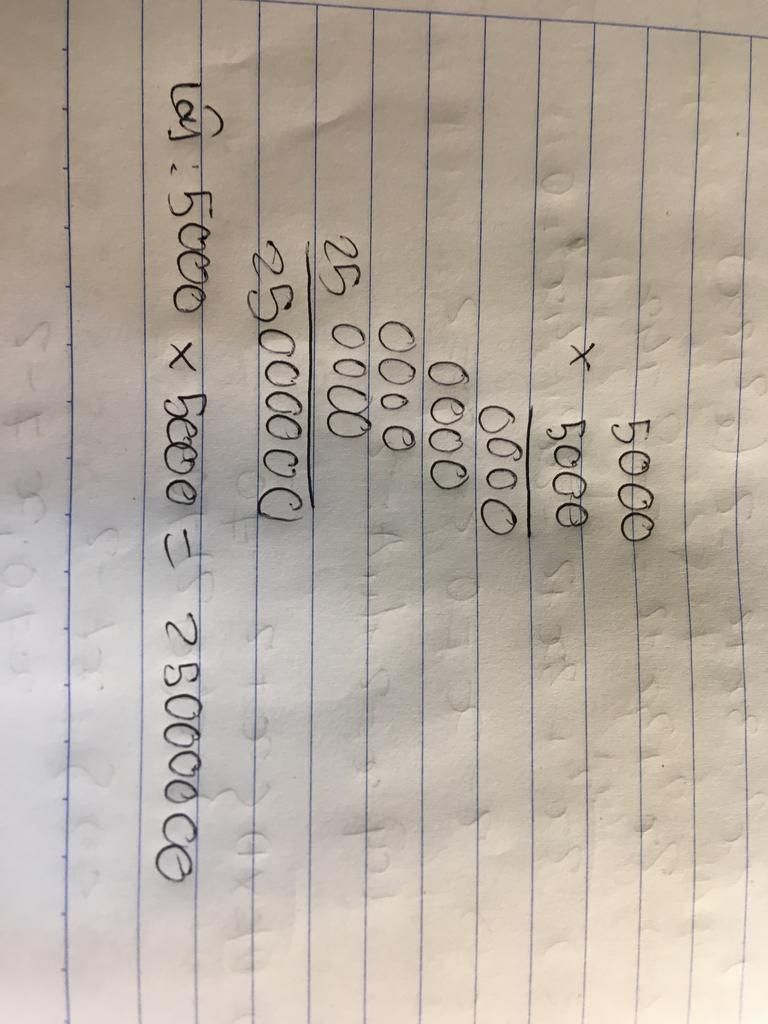 5000
× 5000
0000
0000
0000
25 0000
25000000
ໄດ້ : 5000 × 5000 = 25000000